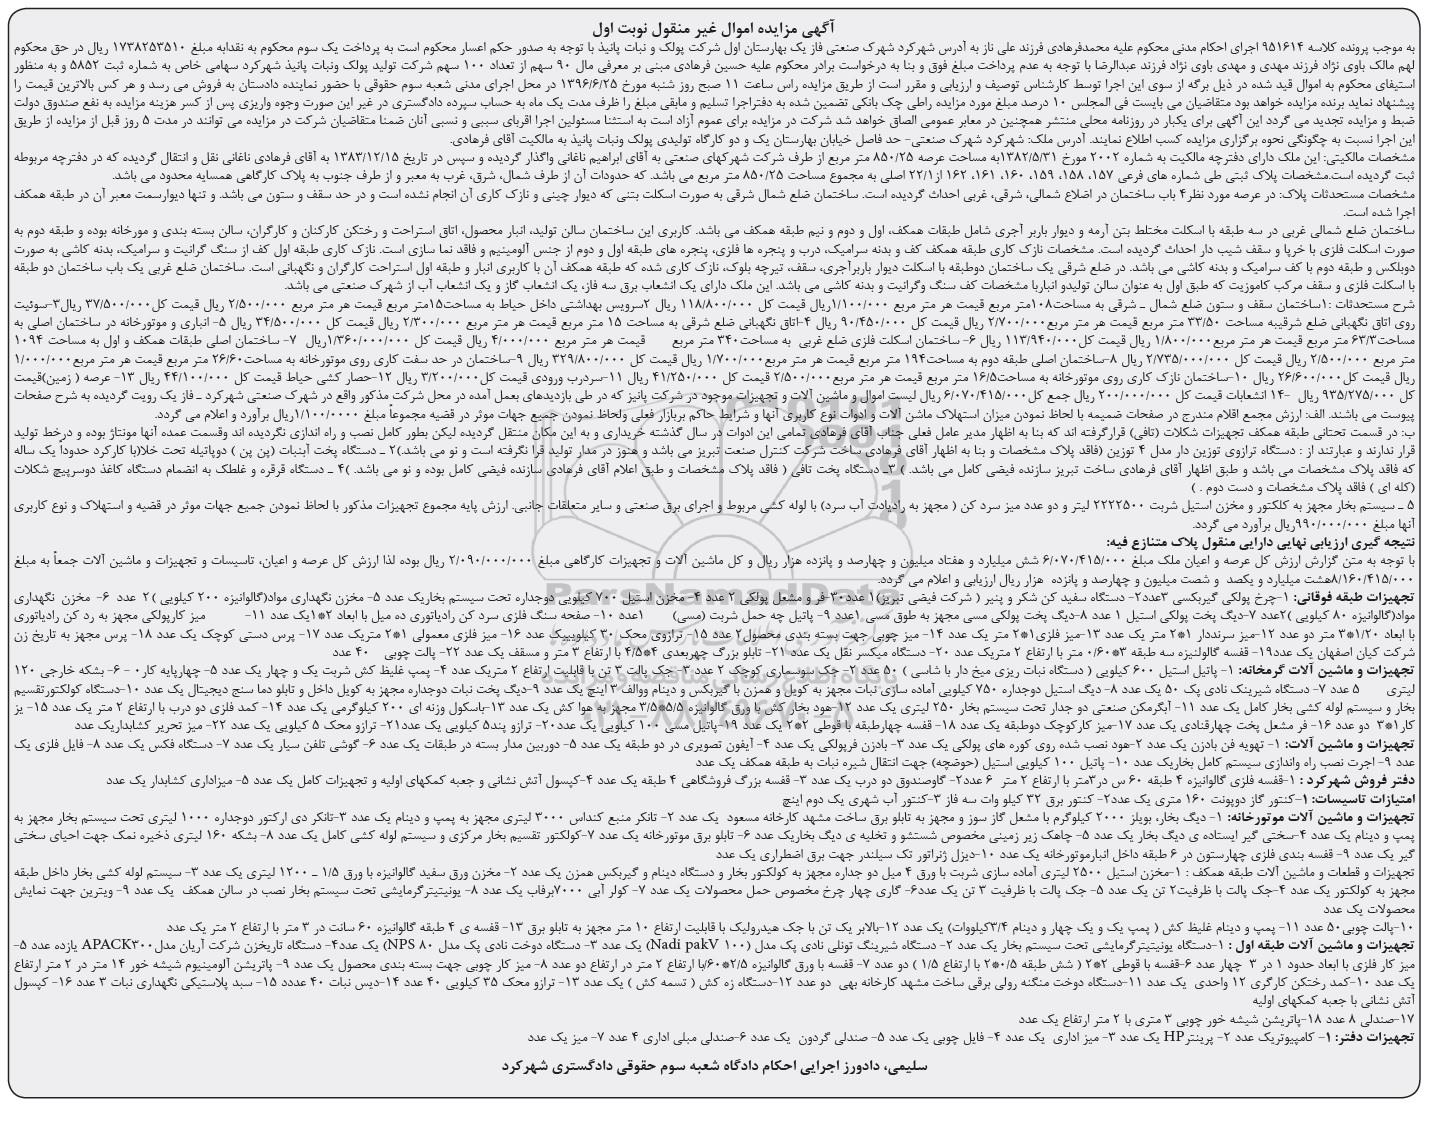 آگهی مزایده اموال غیر منقول نوبت اول
به موجب پرونده کلاسه ۹۵۱۶۱۴ اجرای احکام مدنی محکوم علیه محمدفرهادی فرزند علی ناز به آدرس شهرکرد شهرک صنعتی فاز یک بهارستان اول شرکت پولک و نبات پانیذ با توجه به صدور حکم اعسار محکوم است به پرداخت یک سوم محکوم به نقدابه مبلغ ۱۷۳۸۲۵۳۵۱۰ ریال در حق محکوم
لهم مالک باوی نژاد فرزند مهدی و مهدی باوی نژاد فرزند عبدالرضا با توجه به عدم پرداخت مبلغ فوق و بنا به درخواست برادر محکوم علیه حسین فرهادی مبنی بر معرفی مال ۹۰ سهم از تعداد ۱۰۰ سهم شرکت تولید پولک ونبات پانیذ شهرکرد سهامی خاص به شماره ثبت ۵۸۵۲ و به منظور
استیفای محکوم به اموال قید شده در ذیل برگه از سوی این اجرا توسط کارشناس توصیف و ارزیابی و مقرر است از طریق مزایده راس ساعت ۱۱ صبح روز شنبه مورخ ۱۳۹۶/۶/۲۵ در محل اجرای مدنی شعبه سوم حقوقی با حضور نماینده دادستان به فروش می رسد و هر کس بالاترین قیمت را
پیشنهاد نماید برنده مزایده خواهد بود متقاضیان می بایست فی المجلس ۱۰ درصد مبلغ مورد مزایده راطی چک بانکی تضمین شده به دفتراجرا تسلیم و مابقی مبلغ را ظرف مدت یک ماه به حساب سپرده دادگستری در غیر این صورت وجوه واریزی پس از کسر هزینه مزایده به نفع صندوق دولت
ضبط و مزایده تجدید می گردد این آگهی برای یکبار در روزنامه محلی منتشر همچنین در معابر عمومی الصاق خواهد شد شرکت در مزایده برای عموم آزاد است به استثنا مسئولین اجرا اقربای سببی و نسبی آنان ضمنا متقاضیان شرکت در مزایده می توانند در مدت ۵ روز قبل از مزایده از طریق
این اجرا نسبت به چگونگی نحوه برگزاری مزایده کسب اطلاع نمایند. آدرس ملک: شهرکرد شهرک صنعتی- حد فاصل خیابان بهارستان یک و دو کارگاه تولیدی پولک ونبات پانیذ به مالکیت آقای فرهادی.
مشخصات مالکیتی: این ملک دارای دفترچه مالکیت به شماره ۲۰۰۲ مورخ ۱۳۸۲/۵/۳۱به مساحت عرصه ۸۵۰/۲۵ متر مربع از طرف شرکت شهرکهای صنعتی به آقای ابراهیم ناغانی واگذار گردیده و سپس در تاریخ ۱۳۸۳/۱۲/۱۵ به آقای فرهادی ناغانی نقل و انتقال گردیده که در دفترچه مربوطه
ثبت گردیده است.مشخصات پلاک ثبتی طی شماره های فرعی ۱۵۷، ۱۵۸، ۱۵۹، ۱۶۰، ۱۶۱، ۱۶۲ از۲۲/۱ اصلی به مجموع مساحت ۸۵۰/۲۵ متر مربع می باشد. که حدودات آن از طرف شمال، شرق، غرب به معبر و از طرف جنوب به پلاک کارگاهی همسایه محدود می باشد.
مشخصات مستحدثات پلاک: در عرصه مورد نظر۴ باب ساختمان در اضلاع شمالی، شرقی، غربی احداث گردیده است. ساختمان ضلع شمال شرقی به صورت اسکلت بتنی که دیوار چینی و نازک کاری آن انجام نشده است و در حد سقف و ستون می باشد. و تنها دیوارسمت معبر آن در طبقه همکف
اجرا شده است.
ساختمان ضلع شمالی غربی در سه طبقه با اسکلت مختلط بتن آرمه و دیوار باربر آجری شامل طبقات همکف، اول و دوم و نیم طبقه همکف می باشد. کاربری این ساختمان سالن تولید، انبار محصول، اتاق استراحت و رختکن کارکنان و کارگران، سالن بسته بندی و مورخانه بوده و طبقه دوم به
صورت اسکلت فلزی با خرپا و سقف شیب دار احداث گردیده است. مشخصات نازک کاری طبقه همکف کف و بدنه سرامیک، درب و پنجره ها فلزی، پنجره های طبقه اول و دوم از جنس آلومینیم و فاقد نما سازی است. نازک کاری طبقه اول کف از سنگ گرانیت و سرامیک، بدنه کاشی به صورت
دوبلکس و طبقه دوم با کف سرامیک و بدنه کاشی می باشد. در ضلع شرقی یک ساختمان دوطبقه با اسکلت دیوار باربرآجری، سقف، تیرچه بلوک، نازک کاری شده که طبقه همکف آن با کاربری انبار و طبقه اول استراحت کارگران و نگهبانی است. ساختمان ضلع غربی یک باب ساختمان دو طبقه
با اسکلت فلزی و سقف مرکب کاموزیت که طبق اول به عنوان سالن تولیدو انباربا مشخصات کف سنگ وگرانیت و بدنه کاشی می باشد. این ملک دارای یک انشعاب برق سه فاز، یک انشعاب گاز و یک انشعاب آب از شهرک صنعتی می باشد.
شرح مستحدثات :۱ساختمان سقف و ستون ضلع شمال ـ شرقی به مساحت۱۰۸متر مربع قیمت هر متر مربع ۱/۱۰۰/۰۰۰ریال قیمت کل ۱۱۸/۸۰۰/۰۰۰ ریال ۲سرویس بهداشتی داخل حیاط به مساحت۱۵متر مربع قیمت هر متر مربع ۲/۵۰۰/۰۰۰ ریال قیمت کل۳۷/۵۰۰/۰۰۰ ریال۳-سوئیت
روی اتاق نگهبانی ضلع شرقیبه مساحت ۳۳/۵۰ متر مربع قیمت هر متر مربع۲/۷۰۰/۰۰۰ ریال قیمت کل ۹۰/۴۵۰/۰۰۰ ریال ۴-اتاق نگهبانی ضلع شرقی به مساحت ۱۵ متر مربع قیمت هر متر مربع ۲/۳۰۰/۰۰۰ ریال قیمت کل ۳۴/۵۰۰/۰۰۰ ریال ۵- انباری و موتورخانه در ساختمان اصلی به
مساحت۶۳/۳ متر مربع قیمت هر متر مربع۱/۸۰۰/۰۰۰ ریال قیمت کل۱۱۳/۹۴۰/۰۰۰ ریال ۶- ساختمان اسکلت فلزی ضلع غربی به مساحت۳۴۰ متر مربع قیمت هر متر مربع ۴/۰۰۰/۰۰۰ ریال قیمت کل ۱/۳۶۰/۰۰۰/۰۰۰ریال ۷- ساختمان اصلی طبقات همکف و اول به مساحت ۱۰۹۴
متر مربع ۲/۵۰۰/۰۰۰ ریال قیمت کل ۲/۷۳۵/۰۰۰/۰۰۰ ریال ۸-ساختمان اصلی طبقه دوم به مساحت۱۹۴ متر مربع قیمت هر متر مربع۱/۷۰۰/۰۰۰ ریال قیمت کل ۳۲۹/۸۰۰/۰۰۰ ریال ۹-ساختمان در حد سفت کاری روی موتورخانه به مساحت۲۶/۶۰ متر مربع قیمت هر متر مربع۱/۰۰۰/۰۰۰
ریال قیمت کل۲۶/۶۰۰/۰۰۰ ریال ۱۰-ساختمان نازک کاری روی موتورخانه به مساحت۱۶/۵ متر مربع قیمت هر متر مربع۲/۵۰۰/۰۰۰ قیمت کل ۴۱/۲۵۰/۰۰۰ ریال ۱۱-سردرب ورودی قیمت کل۳/۲۰۰/۰۰۰ ریال ۱۲-حصار کشی حیاط قیمت کل ۴۴/۱۰۰/۰۰۰ ریال ۱۳- عرصه ( زمین)قیمت
کل ۹۳۵/۲۷۵/۰۰۰ ریال ۱۴- انشعابات قیمت کل ۲۰۰/۰۰۰/۰۰۰ ریال جمع کل۶/۰۷۰/۴۱۵/۰۰۰ ریال لیست اموال و ماشین آلات و تجهیزات موجود در شرکت پانیز که در طی بازدیدهای بعمل آمده در محل شرکت مذکور واقع در شهرک صنعتی شهرکرد ـ فاز یک رویت گردیده به شرح صفحات
پیوست می باشند. الف: ارزش مجمع اقلام مندرج در صفحات ضمیمه با لحاظ نمودن میزان استهلاک ماشن آلات و ادوات نوع کاربری آنها و شرایط حاکم بربازار فعلی ولحاظ نمودن جمیع جهات موثر در قضیه مجموعاً مبلغ ۱/۱۰۰/۰۰۰۰ریال برآورد و اعلام می گردد.
ب: در قسمت تحتانی طبقه همکف تجهیزات شکلات (تافی) قرارگرفته اند که بنا به اظهار مدیر عامل فعلی جناب آقای فرهادی تمامی این ادوات در سال گذشته خریداری و به این مکان منتقل گردیده لیکن بطور کامل نصب و راه اندازی نگردیده اند وقسمت عمده آنها مونتاژ بوده و درخط تولید
قرار ندارند و عبارتند از : دستگاه ترازوی توزین دار مدل ۴ توزین (فاقد پلاک مشخصات و بنا به اظهار آقای فرهادی ساخت شرکت کنترل صنعت تبریز می باشد و هنوز در مدار تولید قرا نگرفته است و نو می باشد).۲ ـ دستگاه پخت آبنبات (پن پن ) دوپاتیله تحت خلا(با کارکرد حدوداً یک ساله
که فاقد پلاک مشخصات می باشد و طبق اظهار آقای فرهادی ساخت تبریز سازنده فیضی کامل می باشد. ) ۳ـ دستگاه پخت تافی ( فاقد پلاک مشخصات و طبق اعلام آقای فرهادی سازنده فیضی کامل بوده و نو می باشد. )۴ ـ دستگاه قرقره و غلطک به انضمام دستگاه کاغذ دوسرپیچ شکلات
(کله ای ) فاقد پلاک مشخصات و دست دوم . )
۵ ـ سیستم بخار مجهز به کلکتور و مخزن استیل شربت ۲۲۲۲۵۰۰ لیتر و دو عدد میز سرد کن ( مجهز به رادیادت آب سرد) با لوله کشی مربوط و اجرای برق صنعتی و سایر متعلقات جانبی. ارزش پایه مجموع تجهیزات مذکور با لحاظ نمودن جمیع جهات موثر در قضیه و استهلاک و نوع کاربری
آنها مبلغ ۹۹۰/۰۰۰/۰۰۰ریال برآورد می گردد.
نتیجه گیری ارزیابی نهایی دارایی منقول پلاک متنازع فیه:
با توجه به متن گزارش ارزش کل عرصه و اعیان ملک مبلغ ۶/۰۷۰/۴۱۵/۰۰۰ شش میلیارد و هفتاد میلیون و چهارصد و پانزده هزار ریال و کل ماشین آلات و تجهیزات کارگاهی مبلغ ۲/۰۹۰/۰۰۰/۰۰۰ ریال بوده لذا ارزش کل عرصه و اعیان، تاسیسات و تجهیزات و ماشین آلات جمعاً به مبلغ
۸/۱۶۰/۴۱۵/۰۰۰هشت میلیارد و یکصد و شصت میلیون و چهارصد و پانزده هزار ریال ارزیابی و اعلام می گردد.
تجهیزات طبقه فوقانی: ۱-چرخ پولکی گیربکسی ۳عدد۲- دستگاه سفید کن شکر و پنیر ( شرکت فیضی تبریز)۱ عدد۳۰-فر و مشعل پولکی ۲ عدد ۴-مخزن استیل ۷۰۰ کیلویی دوجداره تحت سیستم بخاریک عدد ۵- مخزن نگهداری مواد(گالوانیزه ۲۰۰ کیلویی )۲ عدد ۶- مخزن نگهداری
مواد(گالوانیزه ۸۰ کیلویی )۲عدد ۷-دیگ پخت پولکی استیل ۱ عدد ۸-دیگ پخت پولکی مسی مجهز به طوق مسی۱عدد ۹- پاتیل چه حمل شربت (مسی) ۱عدد ۱۰- صفحه سنگ فلزی سرد کن رادیاتوری ده میل با ابعاد ۲*۱یک عدد ۱۱- میز کارپولکی مجهز به رد کن رادیاتوری
با ابعاد ۱/۲۰*۳ متر دو عدد ۱۲-میز سرنددار ۱*۲ متر یک عدد ۱۳-میز فلزی۱*۲ متر یک عدد ۱۴- میز چوبی جهت بسته بندی محصول۲ عدد ۱۵- ترازوی محک ۳۰ کیلوییک عدد ۱۶- میز فلزی معمولی ۱*۲ متریک عدد ۱۷- پرس دستی کوچک یک عدد ۱۸- پرس مجهز به تاریخ زن
شرکت کیان اصفهان یک عدد۱۹- قفسه گالوانیزه سه طبقه ۳*۰/۶۰ متر با ارتفاع ۲ متریک عدد ۲۰- دستگاه میکسر نقل یک عدد ۲۱- تابلو بزرگ چهربعدی ۴*۴/۵ با ارتفاع ۳ متر و مسقف یک عدد ۲۲- پالت چوبی ۴۰ عدد
تجهیزات و ماشین آلات گرمخانه: ۱- پاتیل استیل ۶۰۰ کیلویی ( دستگاه نبات ریزی میخ دار با شاسی ) ۵۰ عدد ۲-جک سوسماری کوچک ۲ عدد ۳- جک پالت ۳ تن با قابلیت ارتفاع ۲ متریک عدد ۴- پمپ غلیظ کش شربت یک و چهار یک عدد ۵- چهارپایه کار ۰ - ۶- بشکه خارجی ۱۲۰
لیتری ۵ عدد ۷- دستگاه شیرینک نادی پک ۵۰ یک عدد ۸- دیگ استیل دوجداره ۷۵۰ کیلویی آماده سازی نبات مجهز به کویل و همزن با گیربکس و دینام ووالف ۳ اینچ یک عدد ۹-دیگ پخت نبات دوجداره مجهز به کویل داخل و تابلو دما سنج دیجیتال یک عدد ۱۰-دستگاه کولکتورتقسیم
بخار و سیستم لوله کشی بخار کامل یک عدد ۱۱- آبگرمکن صنعتی دو جدار تحت سیستم بخار ۲۵۰ لیتری یک عدد ۱۲-هود بخار کش با ورق گالوانیزه ۵/۵*۳/۵ مجهز به هوا کش یک عدد ۱۳-باسکول وزنه ای ۲۰۰ کیلوگرمی یک عدد ۱۴- کمد فلزی دو درب با ارتفاع ۲ متر یک عدد ۱۵- یز
کار ۱*۳ دو عدد ۱۶- فر مشعل پخت چهارقنادی یک عدد ۱۷-میز کارکوچک دوطبقه یک عدد ۱۸- قفسه چهارطبقه با قوطی ۲*۲ یک عدد ۱۹-پاتیل مسی ۱۰۰ کیلویی یک عدد۲۰- ترازو پند۵ کیلویی یک عدد۲۱- ترازو محک ۵ کیلویی یک عدد ۲۲- میز تحریر کشابداریک عدد
تجهیزات و ماشین آلات: ۱- تهویه فن بادزن یک عدد ۲-هود نصب شده روی کوره های پولکی یک عدد ۳- بادزن فرپولکی یک عدد ۴- آیفون تصویری در دو طبقه یک عدد ۵- دوربین مدار بسته در طبقات یک عدد ۶- گوشی تلفن سیار یک عدد ۷- دستگاه فکس یک عدد ۸- فایل فلزی یک
عدد ۹- اجرت نصب راه واندازی سیستم کامل بخاریک عدد ۱۰- پاتیل ۱۰۰ کیلویی استیل (حوضچه) جهت انتقال شیره نبات به طبقه همکف یک عدد
دفتر فروش شهرکرد : ۱-قفسه فلزی گالوانیزه ۴ طبقه ۶۰ س در۳متر با ارتفاع ۲ متر ۶ عدد۲- گاوصندوق دو درب یک عدد ۳- قفسه بزرگ فروشگاهی ۴ طبقه یک عدد ۴-کپسول آتش نشانی و جعبه کمکهای اولیه و تجهیزات کامل یک عدد ۵- میزاداری کشابدار یک عدد
امتیازات تاسیسات: ۱-کنتور گاز دوپونت ۱۶۰ متری یک عدد۲- کنتور برق ۳۲ کیلو وات سه فاز ۳-کنتور آب شهری یک دوم اینچ
تجهیزات و ماشین آلات موتورخانه: ۱- دیگ بخار، بویلز ۲۰۰۰ کیلوگرم با مشعل گاز سوز و مجهز به تابلو برق ساخت مشهد کارخانه مسعود یک عدد ۲- تانکر منبع کنداس ۳۰۰۰ لیتری مجهز به پمپ و دینام یک عدد ۳-تانکر دی ارکتور دوجداره ۱۰۰۰ لیتری تحت سیستم بخار مجهز به
پمپ و دینام یک عدد ۴-سختی گیر ایستاده ی دیگ بخار یک عدد ۵- چاهک زیر زمینی مخصوص شستشو و تخلیه ی دیگ بخاریک عدد ۶- تابلو برق موتورخانه یک عدد ۷-کولکتور تقسیم بخار مرکزی و سیستم لوله کشی کامل یک عدد ۸- بشکه ۱۶۰ لیتری ذخیره نمک جهت احیای سختی
گیر یک عدد ۹- قفسه بندی فلزی چهارستون در ۶ طبقه داخل انبارموتورخانه یک عدد ۱۰-دیزل ژنراتور تک سیلندر جهت برق اضطراری یک عدد
تجهیزات و قطعات و ماشین آلات طبقه همکف : ۱-مخزن استیل ۲۵۰۰ لیتری آماده سازی شربت با ورق ۴ میل دو جداره مجهز به کولکتور بخار و دستگاه دینام و گیربکس همزن یک عدد ۲- مخزن ورق سفید گالوانیزه با ورق ۱/۵ ـ ۱۲۰۰ لیتری یک عدد ۳- سیستم لوله کشی بخار داخل طبقه
مجهز به کولکتور یک عدد ۴-جک پالت با ظرفیت۲ تن یک عدد ۵- جک پالت با ظرفیت ۳ تن یک عدد۶- گاری چهار چرخ مخصوص حمل محصولات یک عدد ۷- کولر آبی ۷۰۰۰برفاب یک عدد ۸- یونیتیترگرمایشی تحت سیستم بخار نصب در سالن همکف یک عدد ۹- ویترین جهت نمایش
محصولات یک عدد
۱۰-پالت چوبی۵۰ عدد ۱۱- پمپ و دینام غلیظ کش ( پمپ یک و یک چهار و دینام ۳/۴کیلووات) یک عدد ۱۲-بالابر یک تن با جک هیدرولیک با قابلیت ارتفاع ۱۰ متر مجهز به تابلو برق ۱۳- قفسه ی ۴ طبقه گالوانیزه ۶۰ سانت در ۳ متر با ارتفاع ۲ متر یک عدد
تجهیزات و ماشین آلات طبقه اول : ۱-دستگاه یونیتیترگرمایشی تحت سیستم بخار یک عدد ۲- دستگاه شیرینگ تونلی نادی پک مدل (Nadi pakV ۱۰۰) یک عدد ۳- دستگاه دوخت نادی پک مدل NPS ۸۰) یک عدد۴- دستگاه تاریخزن شرکت آریان مدلAPACK۳۰۰ یازده عدد ۵-
میز کار فلزی با ابعاد حدود ۱ در ۳ چهار عدد ۶-قفسه با قوطی ۲*۲ ( شش طبقه ۰/۵*۲ با ارتفاع ۱/۵ ) دو عدد ۷- قفسه با ورق گالوانیزه ۲/۵*۶۰/با ارتفاع ۲ متر در ارتفاع دو عدد ۸- میز کار چوبی جهت بسته بندی محصول یک عدد ۹- پاتریشن آلومینیوم شیشه خور ۱۴ متر در ۲ متر ارتفاع
یک عدد ۱۰-کمد رختکن کارگری ۱۲ واحدی یک عدد ۱۱-دستگاه دوخت منگنه رولی برقی ساخت مشهد کارخانه بهی دو عدد ۱۲-دستگاه زه کش ( تسمه کش ) یک عدد ۱۳- ترازو محک ۳۵ کیلویی ۴۰ عدد ۱۴-دیس نبات ۴۰ عددد ۱۵- سبد پلاستیکی نگهداری نبات ۳ عدد ۱۶- کپسول
آتش نشانی با جعبه کمکهای اولیه
۱۷-صندلی ۸ عدد ۱۸-پاتریشن شیشه خور چوبی ۳ متری با ۲ متر ارتفاع یک عدد
تجهیزات دفتر: ۱- کامپیوتریک عدد ۲- پرینترHP یک عدد ۳- میز اداری یک عدد ۴- فایل چوبی یک عدد ۵- صندلی گردون یک عدد ۶-صندلی مبلی اداری ۴ عدد ۷- میز یک عدد
سلیمی، دادورز اجرایی احکام دادگاه شعبه سوم حقوقی دادگستری شهرکرد
ParsNamadData
پایگاه اطلاع رسانی مناقصه و مزایده
۰۲۱-۸۸۳۴۹۶۷۰-۵